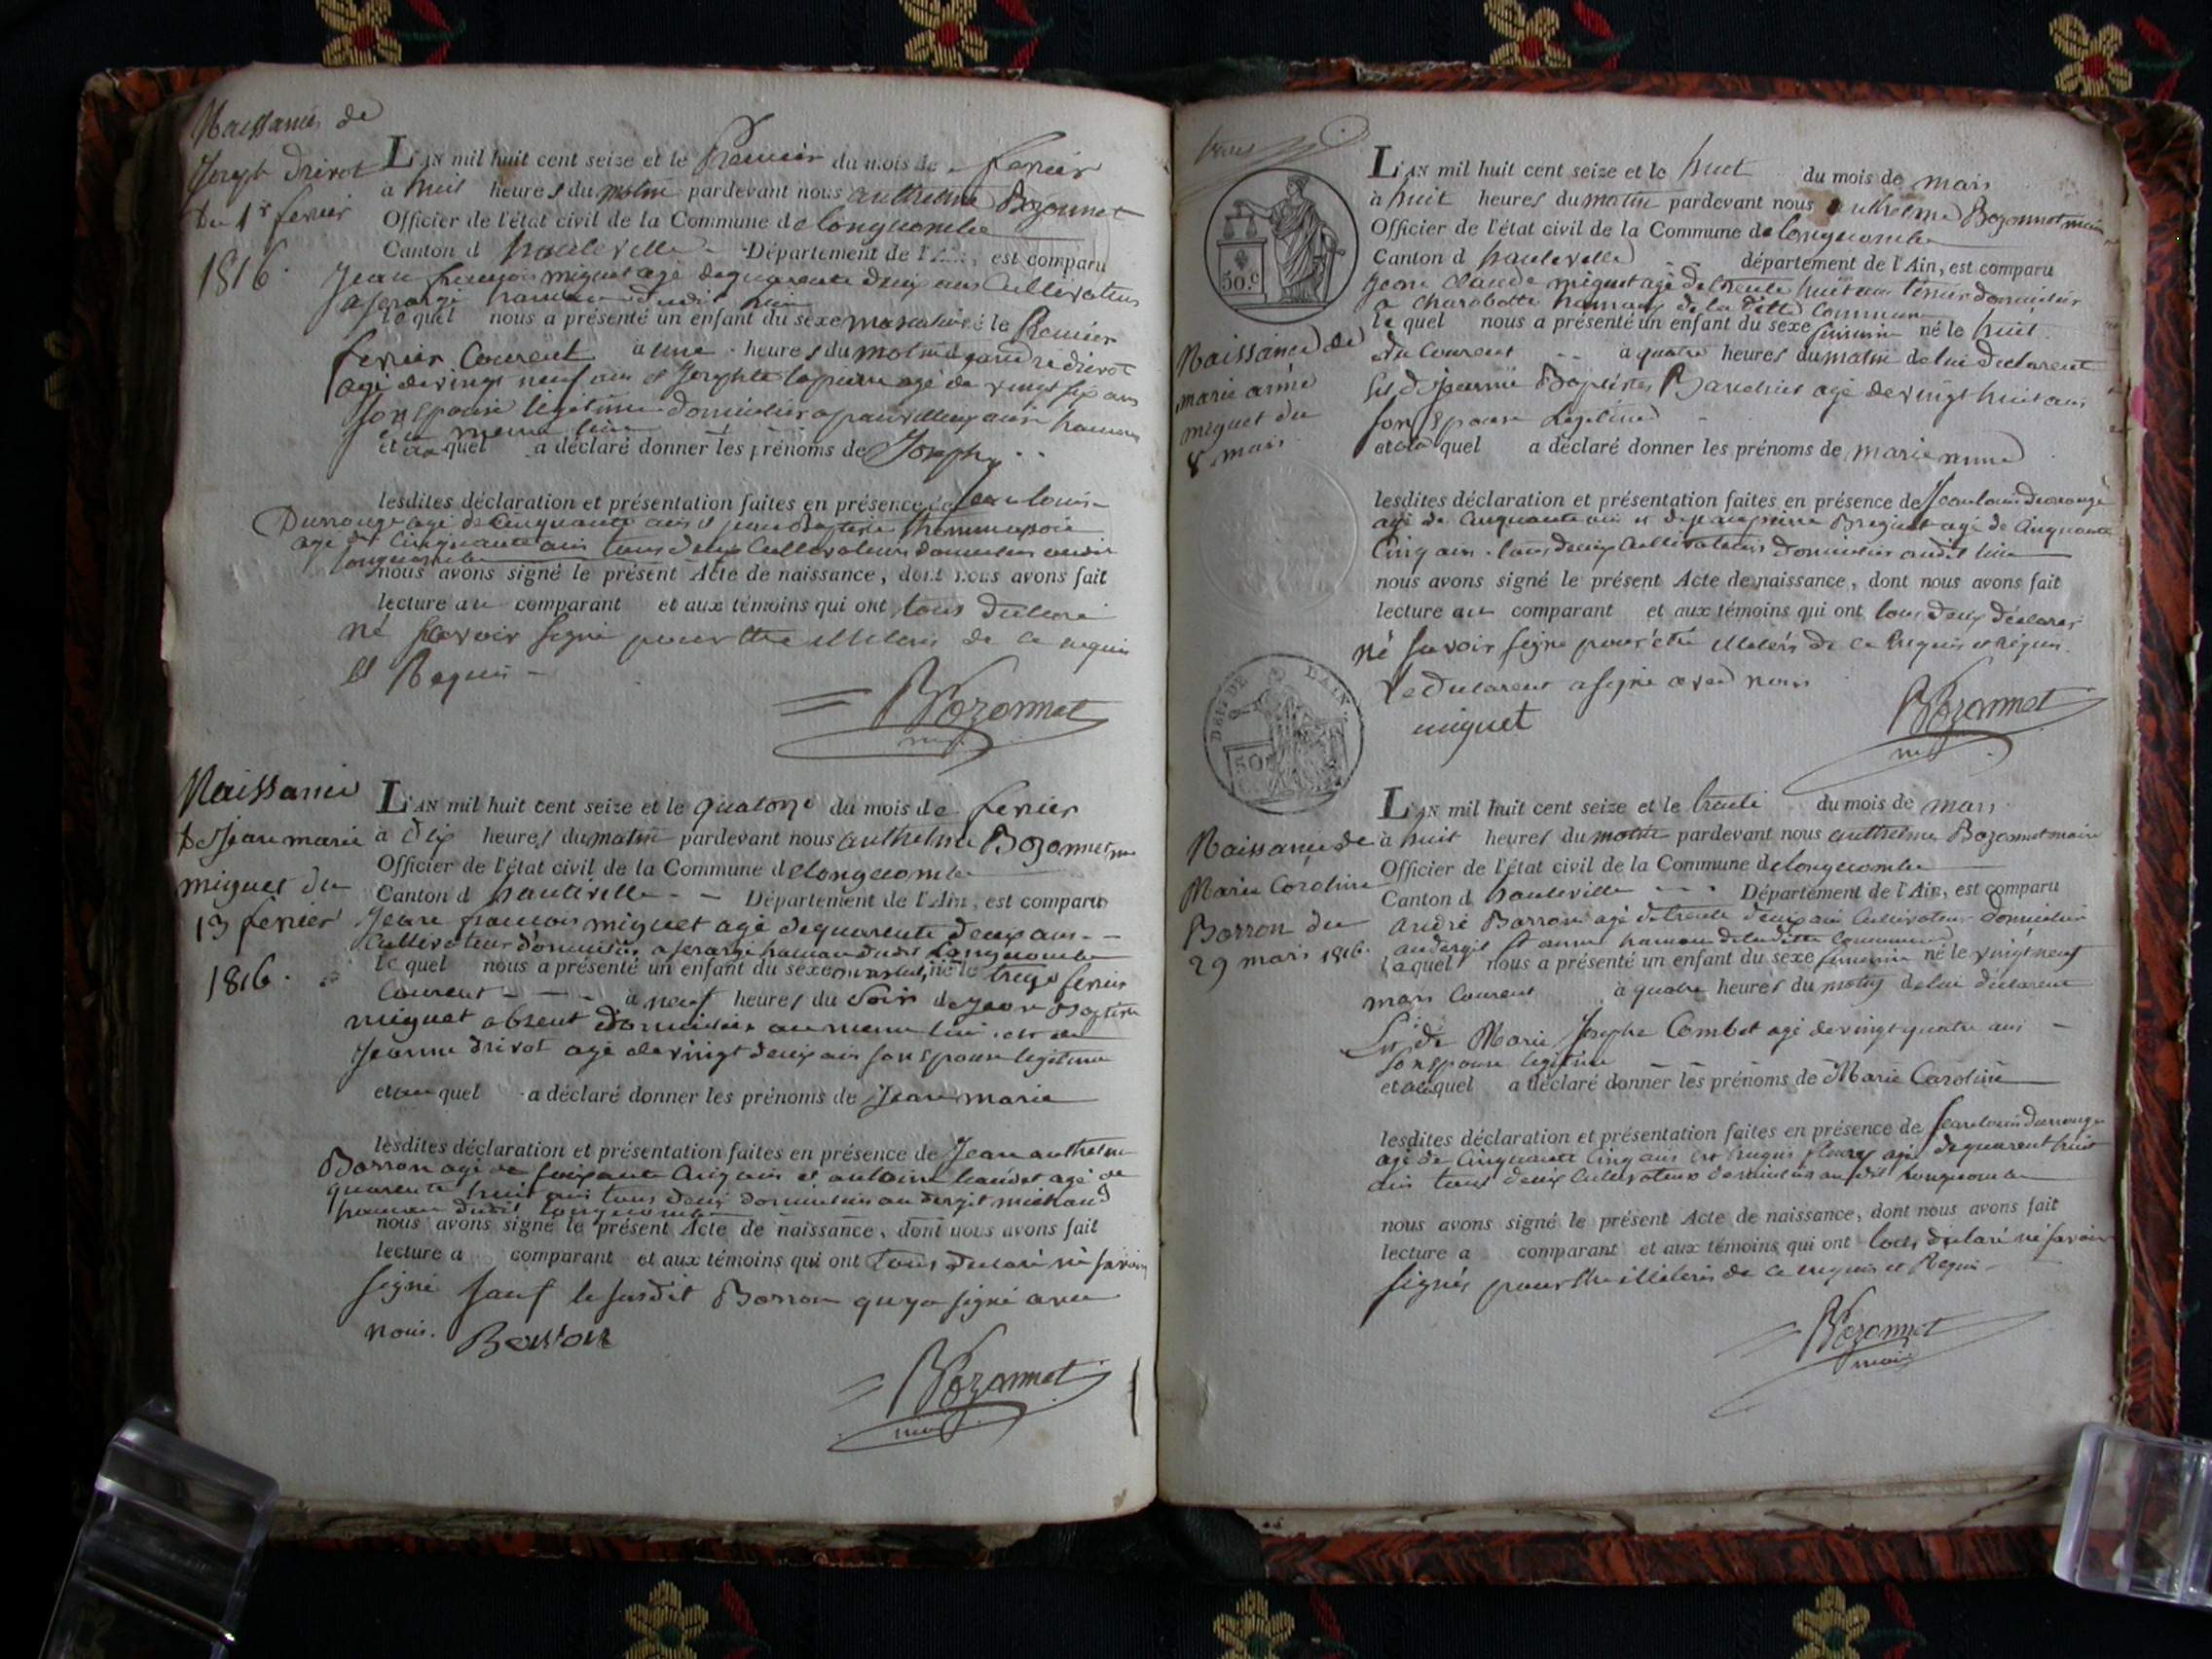 Naissance de
Joseph drivot
du 1r fevrier
1816.
L'AN mil huit cent seize et le Premier du mois de fevrier
à huit heures du matin pardevant nous anthelme Bozonnet
Officier de l'état civil de la Commune de longecombe
Canton d hauteville Département de l'Ain, est comparu
Jean françois miguet agé de quarente deux ans Cultivateur
hameau dudit lieu
lequel nous a présenté un enfant du sexe masculin né le Premier
fevrier Courent à une heures du matin d drivot
agé de vingt neuf ans et Josephte lapierre agé de vingt six ans
son Epouse legitime domicilier hameau
meme lieu
et au quel a déclaré donner les prénoms de Joseph
lesdites déclaration et présentation faites en présence de Jean louis
Durrouge agé de Cinquante ans et jean Baptiste
agé de Cinquante ans tous deux Cultivateurs domicilier audit
longecombe
nous avons signé le présent Acte de naissance, dont nous avons fait
lecture au comparant et aux témoins qui ont tous declaré
né savoir signé pour etre illeteres de ce enquis
et Requis
Bozonnet
Naissance
de Jean marie
miguet du
13 fevrier
1816.
L'AN mil huit cent seize et le quatorze du mois de fevrier
à dix heures du matin pardevant nous anthelme Bozonnet
Officier de l'état civil de la Commune d elongecombe
Canton d hauteville Département de l'Ain, est comparu
Jean francois miguet agé de quarente deux ans
Cultivateur domicilier hameau dudit Longecombe
lequel nous a présenté un enfant du sexe masculin, né le treize fevrier
Courent à neuf heures du soir de Jean Baptiste
miguet absent domicilier au meme lieu et de
Jeanne drivot agé de vingt deux ans son Epouse legitime
et au quel a déclaré donner les prénoms de Jean marie
lesdites déclaration et présentation faites en présence de Jean anthelme
Borron agé de soixante Cinq ans et antoine agé de
quarente huit ans tous deux domicilier au dergit michaud
hameau dudit longecombe
nous avons signé le présent Acte de naissance, dont nous avons fait
lecture a comparant et aux témoins qui ont tous declaré né savoir
signé sauf le susdit Borron qu y a signé avec
nous. Borron
Bozonnet
50.c
Naissance de
marie anne
miguet du
8 mars
L'AN mil huit cent seize et le huit du mois de mars
à huit heures du matin pardevant nous anthelme Bozonnet maire
Officier de l'état civil de la Commune de longecombe
Canton d hauteville département de l'Ain, est comparu
Jean Claude miguet agé de trente huit ans domicilier
a charabotte hameau de la ditte Commune
lequel nous a présenté un enfant du sexe feminin né le huit
du Courent à quatre heures du matin de lui declarent
et de Jeanne Baptiste agé de vingt huit ans
son Epouse Legitime
et au quel a déclaré donner les prénoms de marie anne
lesdites déclaration et présentation faites en présence de Jean louis durrouge
agé de Cinquante ans et de jean pierre agé de Cinquante
Cinq ans tous deux Cultivateurs domicilier audit lieu
nous avons signé le présent Acte de naissance, dont nous avons fait
lecture au comparant et aux témoins qui ont tous deux déclarés
né savoir signé pour être illeterés de ce enquis et requis.
Le declarent a signé avec nous
miguet
Bozonnet
DEP. DE L'AIN.
50
Naissance de
Marie Caroline
Borron du
29 mars 1816.
L'AN mil huit cent seize et le trente du mois de mars
à huit heures du matin pardevant nous anthelme Bozonnet maire
Officier de l'état civil de la Commune de longecombe
Canton d hauteville Département de l'Ain, est comparu
andré Borron agé de trente deux ans Cultivateur domicilier
hameau de la ditte Commune
lequel nous a présenté un enfant du sexe feminin né le vingt neuf
mars Courent à quatre heures du matin de lui declarent
Et de Marie Josephe Combet agé de vingt quatre ans
son Epouse legitime
et au quel a déclaré donner les prénoms de Marie Caroline
lesdites déclaration et présentation faites en présence de Jean louis durrouge
agé de Cinquante Cinq ans et agé de quarente huit
ans tous deux Cultivateurs domicilier audit longecombe
nous avons signé le présent Acte de naissance, dont nous avons fait
lecture a comparant et aux témoins qui ont tous declaré né savoir
signés pour etre illeterés de ce enquis et Requis
Bozonnet
maire